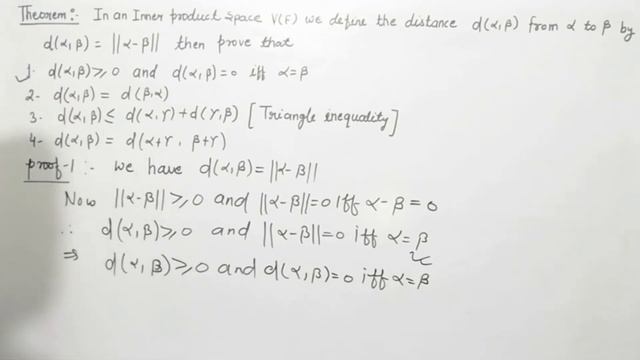 Theorem:- In an Inner product space V(F) we define the distance d(α,β) from α to β by
d(α,β) = ||α-β|| then prove that
1. d(α,β)≥0 and d(α,β)=0 iff α=β
2- d(α,β) = d(β,α)
3. d(α,β) ≤ d(α,γ)+d(γ,β) [Triangle inequality]
4- d(α,β) = d(α+γ, β+γ)
proof-1:- we have d(α,β)=||α-β||
Now ||α-β||≥0 and ||α-β||=0 iff α-β=0
∴ d(α,β)≥0 and ||α-β||=0 iff α=β
⇒ d(α,β)≥0 and d(α,β)=0 iff α=β